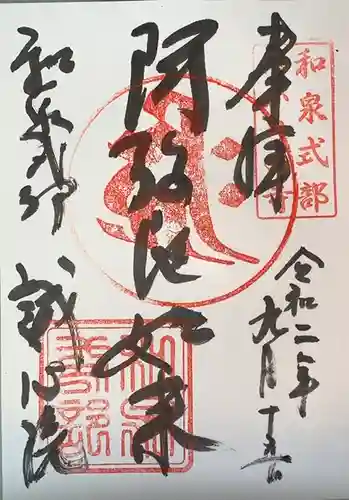 奉拝
和泉式部
令和二年
九月十五日
阿弥陀如来
和泉式部
誠心院